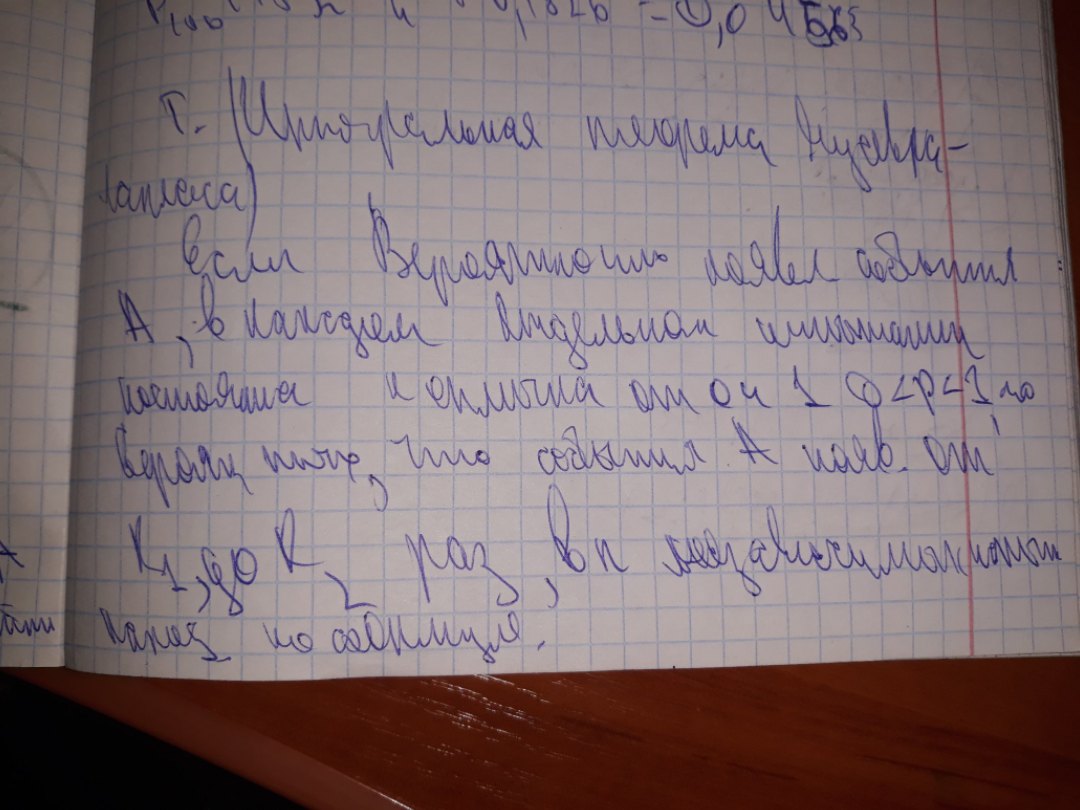 = 0,0456
Т. (Интегральная теорема Муавра-
Лапласа)
Если Вероятность появл события
А, в каждом отдельном испытании
постоянна и отлична от 0 и 1 0<p<1 то
вероят того, что события А появ. от
K1, до K2 раз, в n независимых испыт